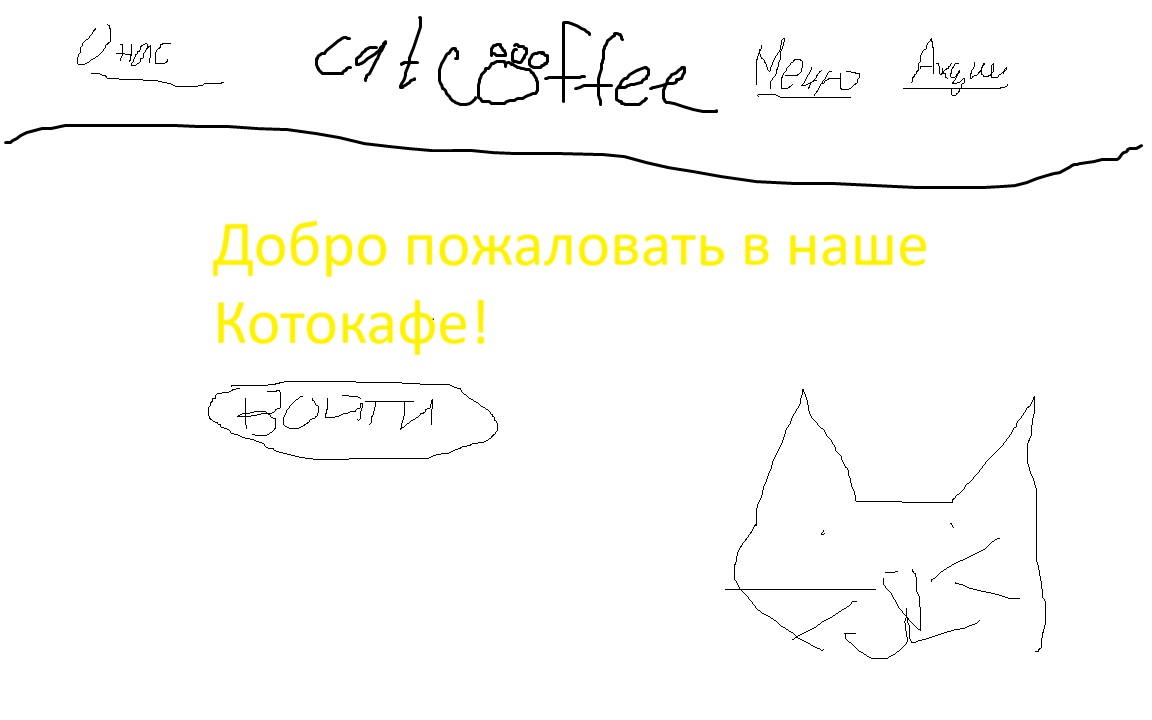 О нас cat coffee Меню Акции
Добро пожаловать в наше
Котокафе!
Войти